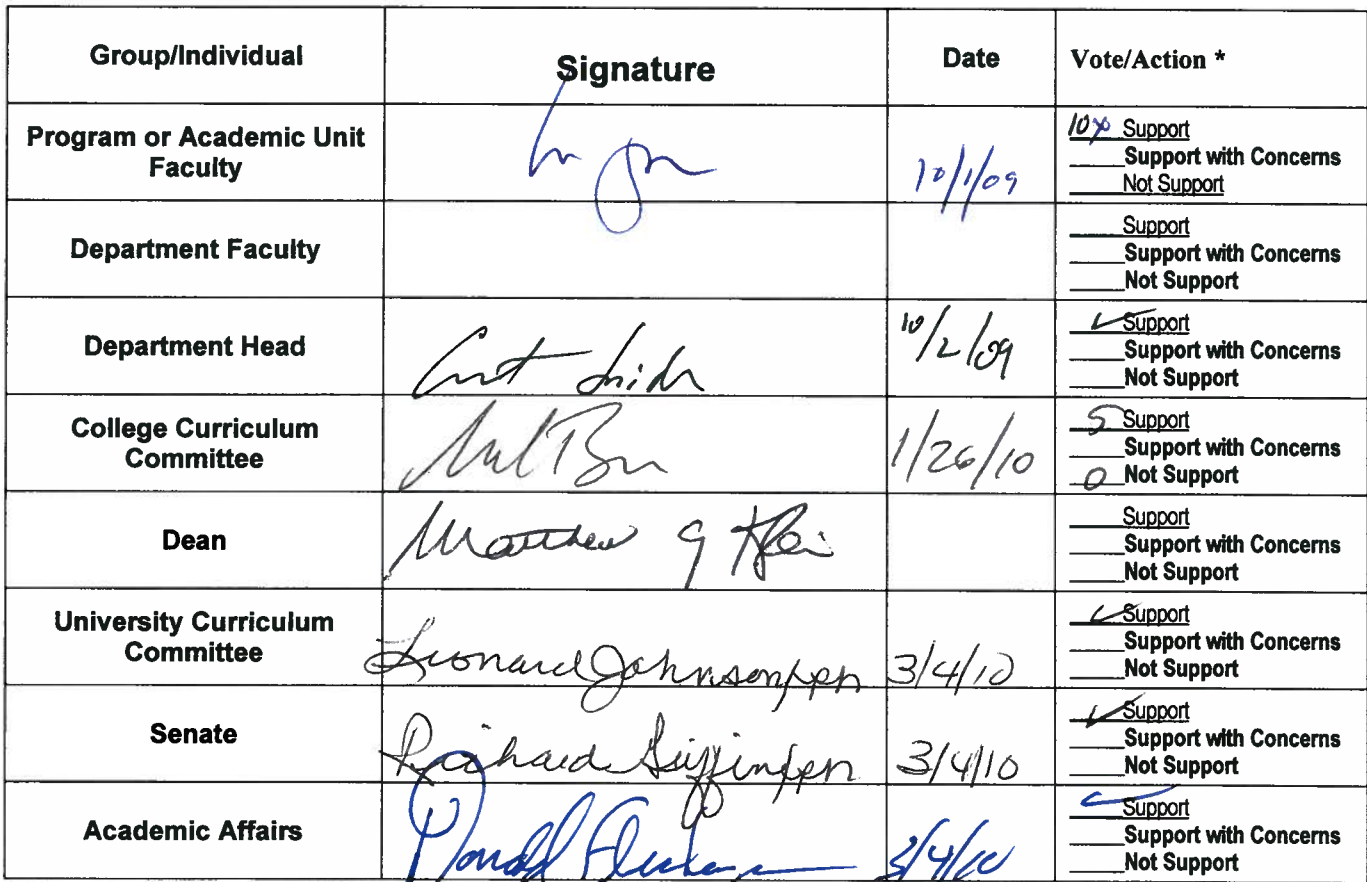 Group/Individual Signature Date Vote/Action *
Program or Academic Unit Faculty 10/1/09
10 Support
____Support with Concerns
____Not Support
Department Faculty
____Support
____Support with Concerns
____Not Support
Department Head 10/2/09
✓Support
____Support with Concerns
____Not Support
College Curriculum Committee 1/26/10
5 Support
____Support with Concerns
0 Not Support
Dean Matthew G
____Support
____Support with Concerns
____Not Support
University Curriculum Committee Leonard Johnson/ppn 3/4/10
✓Support
____Support with Concerns
____Not Support
Senate Richard Griffin/ppn 3/4/10
✓Support
____Support with Concerns
____Not Support
Academic Affairs Donald 3/4/10
✓Support
____Support with Concerns
____Not Support